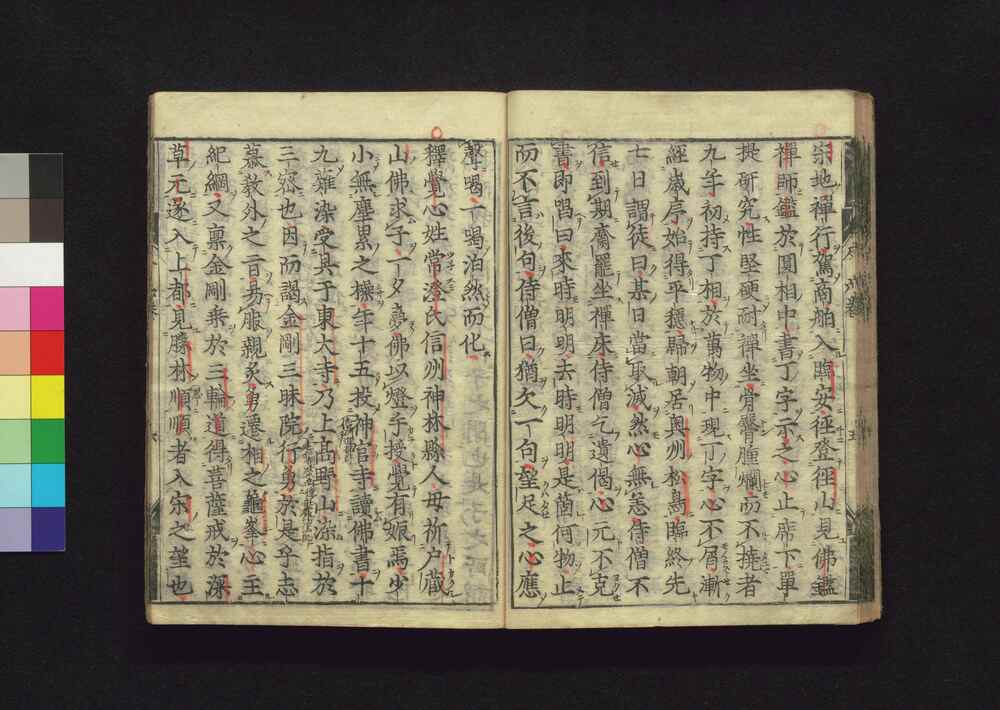 宗地禪行駕商舶入臨安徃登徑山見佛鑑
禪師鑑於圓相中書丁字示之心止席下單
提研究性堅硬耐禪坐骨臀腫爛而不撓者
九年初持丁相於萬物中現丁字心不屑漸
經歳序始得平穩歸朝居奥州松島臨終先
七日謂徒曰某日當取滅然心無恙侍僧不
信到期齋罷坐禪床侍僧乞遺偈心元不克
書即唱曰來時明明去時明明是箇何物止
而不言後句侍僧曰猶欠一句望足之心應
聲喝一喝泊然而化
釋覺心姓常澄氏信州神林縣人母祈戸藏
山佛求子一夕夢佛以燈手授覺有娠焉少
小無塵累之操年十五投神宮寺讀佛書十
九薙染受具于東大寺乃上高野山染指於
三密也因而謁金剛三昧院行勇於是乎志
慕教外之旨勇服親炙勇遷相之龜峯心主
紀綱又禀金剛乘於三輪道得菩薩戒於深
草元遂入上都見勝林順順者入宋之望也